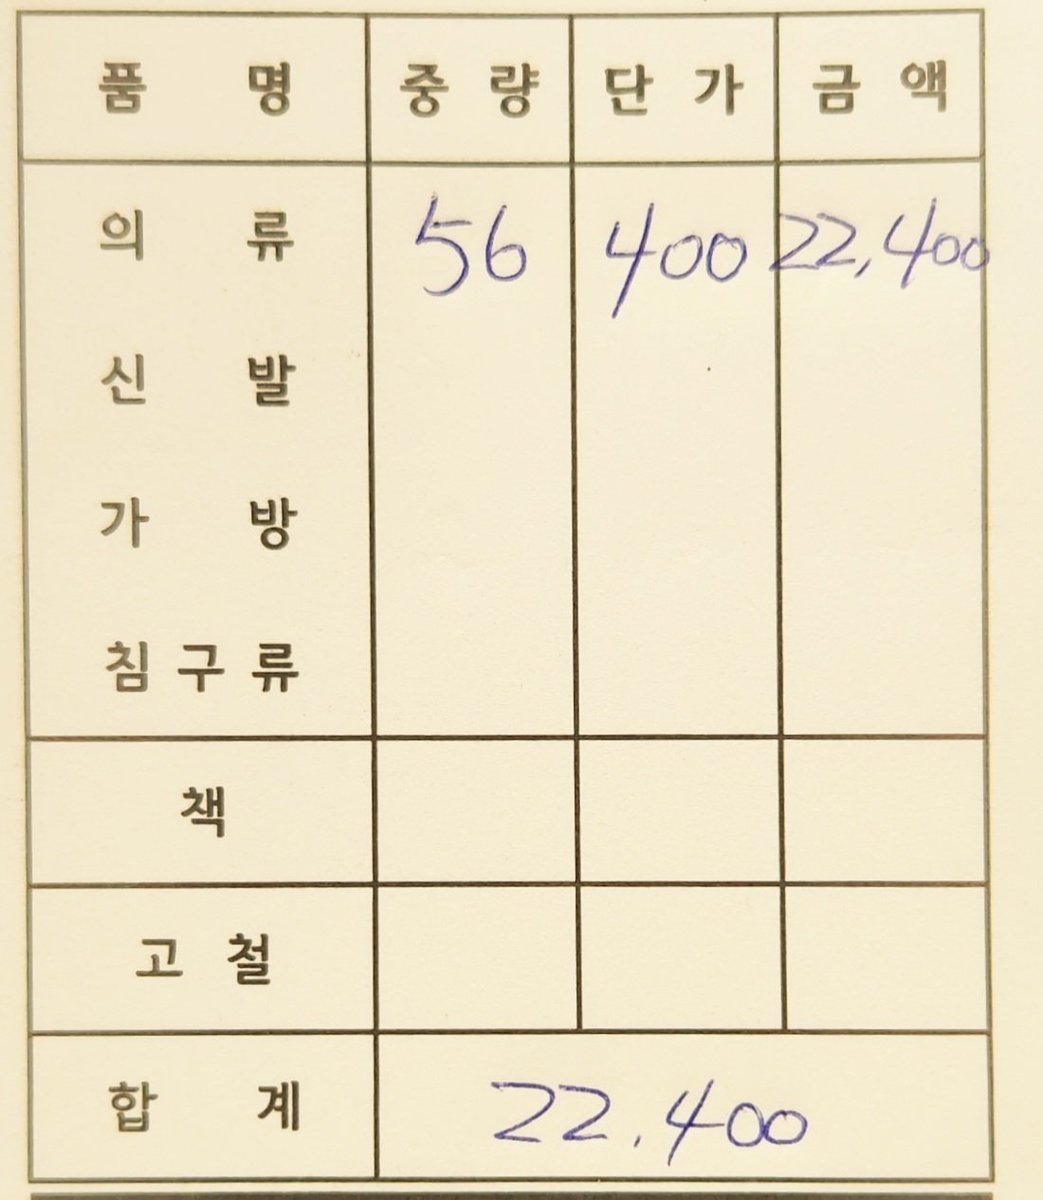 품 명 중 량 단 가 금 액
의 류 56 400 22,400
신 발
가 방
침 구 류
책
고 철
합 계 22.400